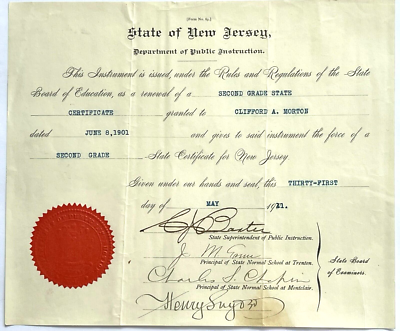 State of New Jersey,
Department of Public Instruction.
This Instrument is issued, under the Rules and Regulations of the State
Board of Education, as a renewal of a SECOND GRADE STATE
CERTIFICATE granted to CLIFFORD A. MORTON
dated JUNE 8, 1901 and gives to said instrument the force of a
SECOND GRADE State Certificate for New Jersey.
Given under our hands and seal, this THIRTY-FIRST
day of MAY 1911.
C J Baxter
State Superintendent of Public Instruction.
J M
Principal of State Normal School at Trenton.
Charles S. Chapin
Principal of State Normal School at Montclair.
Henry Snyder
State Board
of
Examiners.